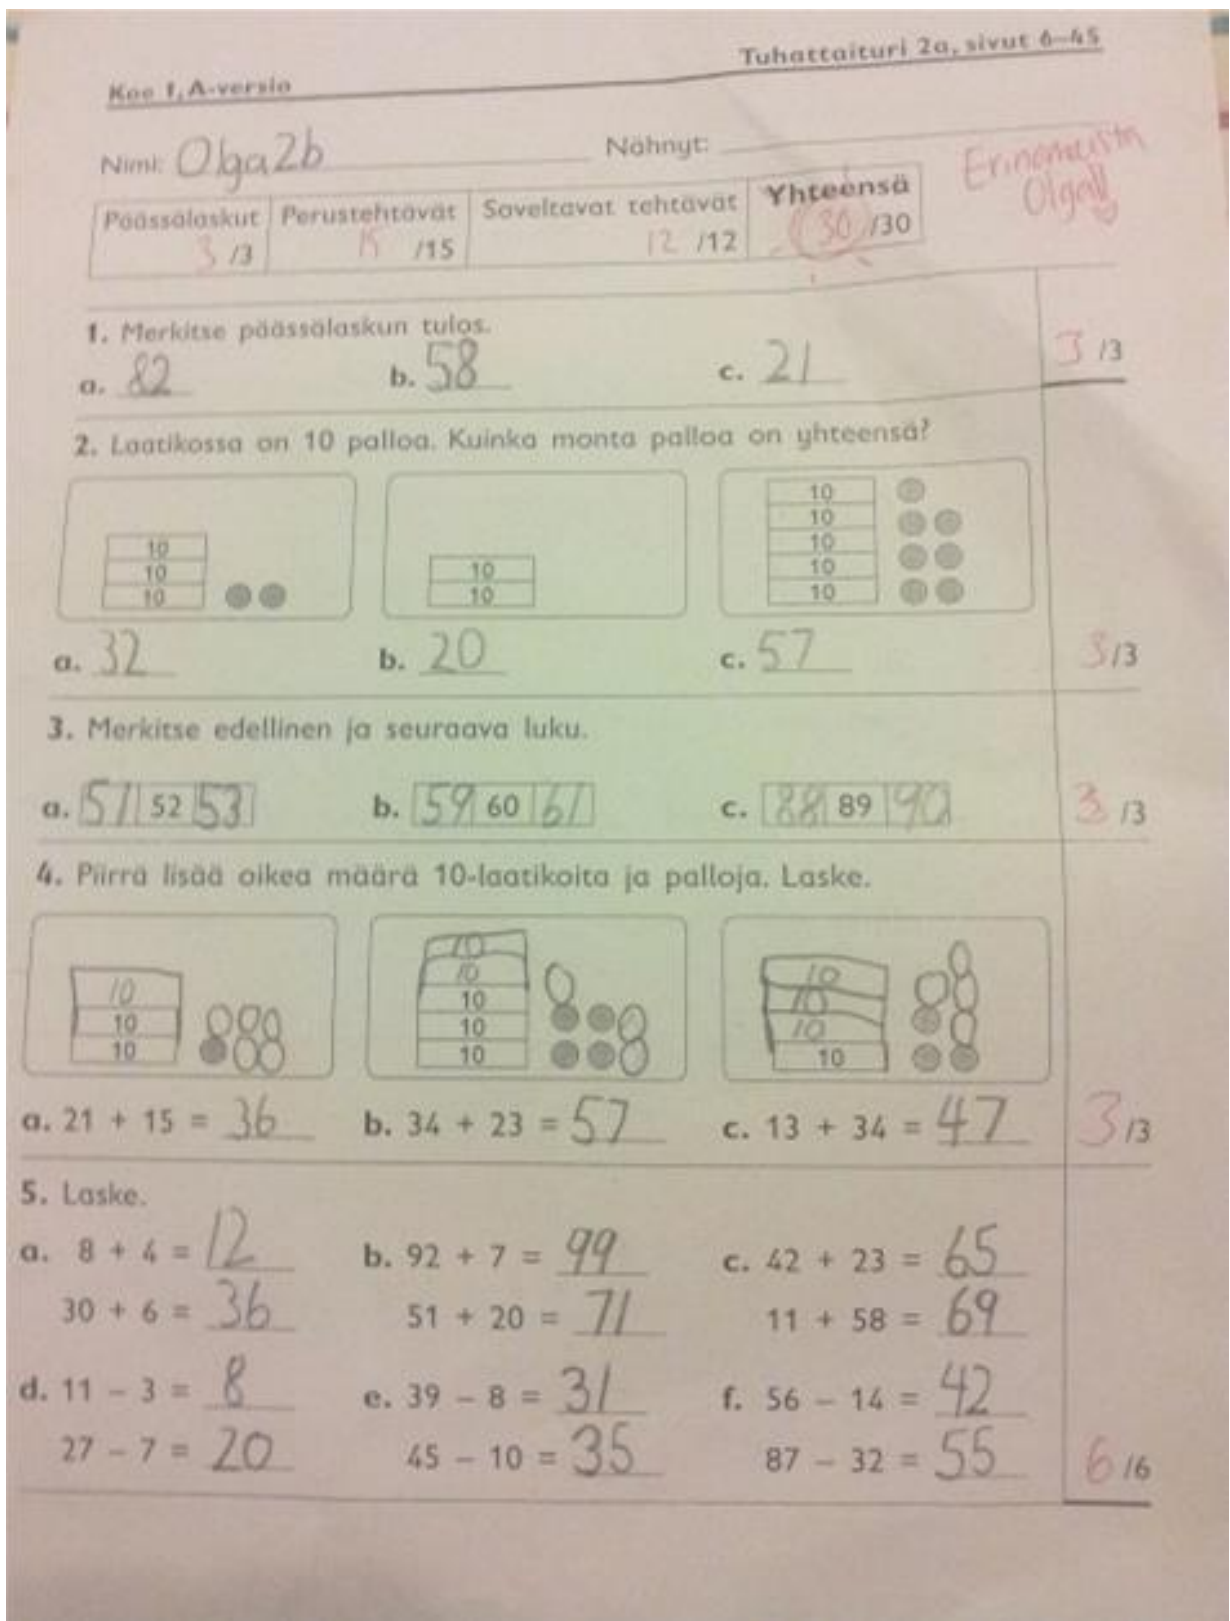 Tuhattaituri 2a, sivut 6–45
Koe 1, A-versio
Nimi: Olga 2b Nähnyt:
Erinomaista
Olga!!
Päässälaskut Perustehtävät Soveltavat tehtävät Yhteensä
3 /3 15 /15 12 /12 30 /30
1. Merkitse päässälaskun tulos.
a. 82 b. 58 c. 21 3 /3
2. Laatikossa on 10 palloa. Kuinka monta palloa on yhteensä?
10
10
10
10
10
10
10
10
10
10
a. 32 b. 20 c. 57 3 /3
3. Merkitse edellinen ja seuraava luku.
a. 51 52 53 b. 59 60 61 c. 88 89 90 3 /3
4. Piirrä lisää oikea määrä 10-laatikoita ja palloja. Laske.
10
10
10
10
10
10
10
10
10
10
10
10
a. 21 + 15 = 36 b. 34 + 23 = 57 c. 13 + 34 = 47 3 /3
5. Laske.
a. 8 + 4 = 12 b. 92 + 7 = 99 c. 42 + 23 = 65
30 + 6 = 36 51 + 20 = 71 11 + 58 = 69
d. 11 – 3 = 8 e. 39 – 8 = 31 f. 56 – 14 = 42
27 – 7 = 20 45 – 10 = 35 87 – 32 = 55 6 /6